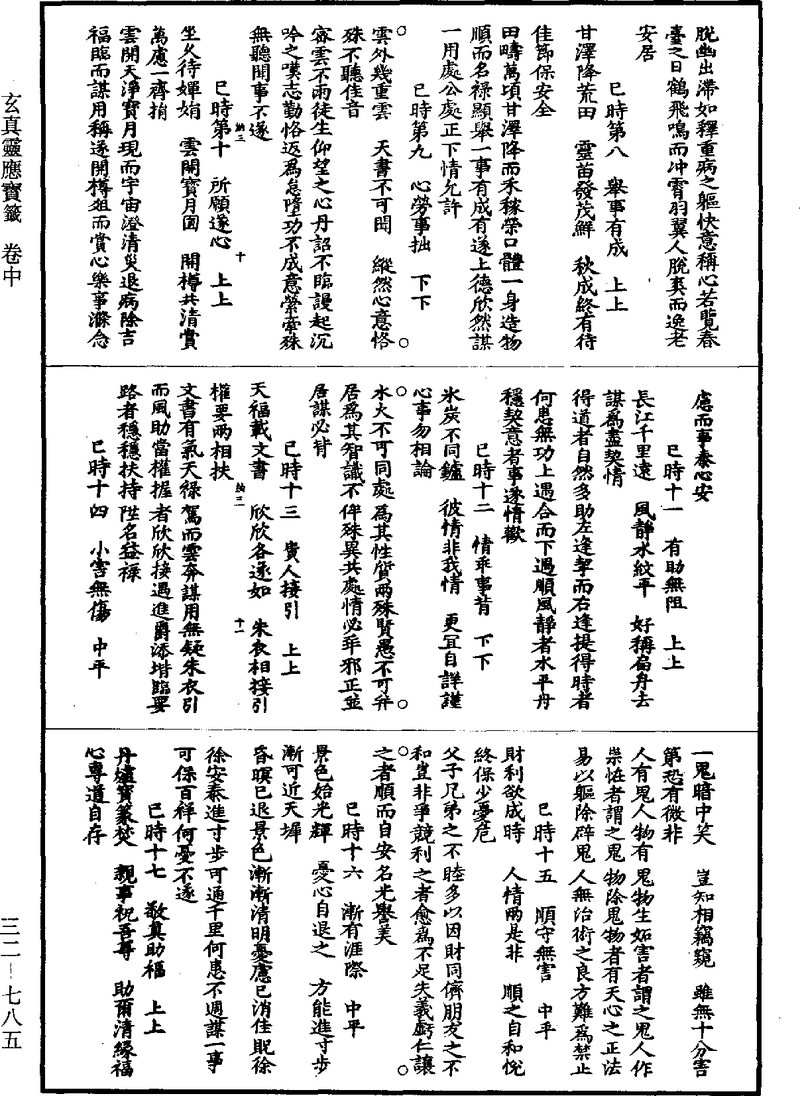 脫幽出滯如釋重病之軀快意稱心若覽春
臺之日鶴飛鳴而沖霄羽翼人脫奕而逸老
安居
巳時第八　舉事有成　上上
甘澤降荒田　靈苗發茂鮮　秋成終有待
佳節保安全
田疇萬頃甘澤降而禾稼榮口體一身造物
順而名祿顯舉一事有成有遂上德欣然謀
一用處公處正下情允許
巳時第九　心勞事拙　下下
雲外幾重雲　天書不可聞　縱然心意恪
殊不聽佳音
密雲不雨徒生仰望之心丹詔不臨謾起沉
吟之嘆志勤恪返爲怠隳功不成意縈牽殊
無聽聞事不遂
巳時第十　所願遂心　上上
坐久待嬋娟　雲開寶月圓　開樽共清賞
萬慮一齊捐
雲開天淨寶月現而宇宙澄清災退病除吉
福臨而謀用稱遂開樽俎而賞心樂事滌念
慮而事泰心安
巳時十一　有助無阻　上上
長江千里遠　風靜水紋平　好稱扁舟去
謀爲盡契情
得道者自然多助左逢挈而右逢提得時者
何患無功上遇合而下遇順風靜者水平舟
穩契意者事遂情歡
巳時十二　情乖事背　下下
氷炭不同鑪　彼情非我情　更宜自詳謹
心事勿相論
水火不可同處爲其性質兩殊賢愚不可弁
居爲其智識不侔殊異共處情必乖邪正並
居謀必背
巳時十三　貴人接引　上上
天福載文書　欣欣各遂如　朱衣相接引
權要兩相扶
文書有氣天祿駕而雲奔謀用無疑朱衣引
而風助當權握者欣欣接遇進爵添堦臨要
路者穩穩扶持陞名益祿
巳時十四　小害無傷　中平
一鬼暗中笑　豈知相竊窺　雖無十分害
第恐有微非
人有鬼人物有鬼物生妬害者謂之鬼人作
祟怪者謂之鬼物除鬼物者有天心之正法
易以軀除辟鬼人無治術之良方難爲禁止
巳時十五　順守無害　中平
財利欲成時　人情兩是非　順之自和悅
終保少憂危
父子兄弟之不睦多以因財同儕朋友之不
和豈非爭競利之者愈爲不足失義虧仁讓
之者順而自安名光譽美
巳時十六　漸有涯際　中平
景色始光輝　憂心自退之　方能進寸步
漸可近天墀
昏暝已退景色漸漸清明憂慮已消住既徐
徐安泰進寸步可通千里何患不遇謀一事
可保百祥何憂不遂
巳時十七　敬真助福　上上
丹爐寶篆焚　親事祝吾尊　助爾清緣福
心專道自存
玄真靈應寶籤　卷中
三二—七八五